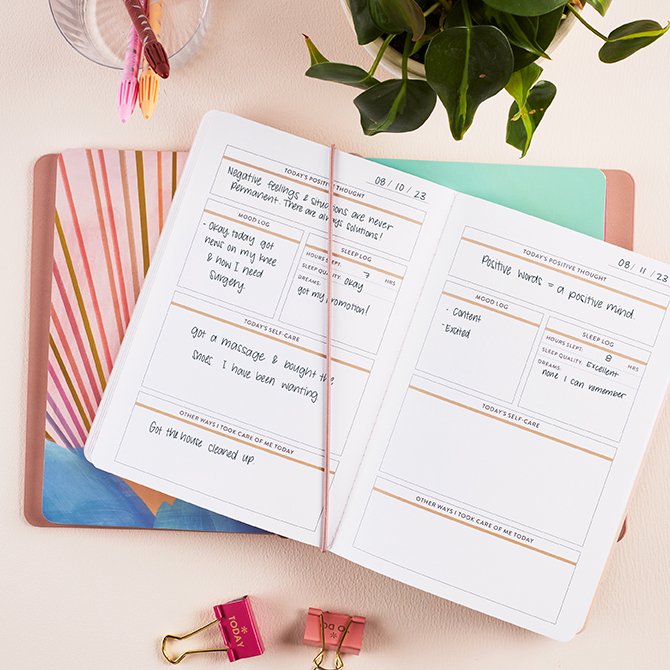 08 / 10 / 23
TODAY'S POSITIVE THOUGHT
Negative feelings & situations are never
Permanent There are always solutions!
MOOD LOG
- Okay, today got
news on my knee
& how I need
surgery.
SLEEP LOG
HOURS SLEPT: 7 HRS
SLEEP QUALITY: okay
DREAMS:
got my promotion!
TODAY'S SELF-CARE
got a massage & bought the
shoes I have been wanting
OTHER WAYS I TOOK CARE OF ME TODAY
Got the house cleaned up.
08 / 11 / 23
TODAY'S POSITIVE THOUGHT
Positive words = a positive mind.
MOOD LOG
- Content
- Excited
SLEEP LOG
HOURS SLEPT: 8 HRS
SLEEP QUALITY: Excellent
DREAMS:
none I can remember
TODAY'S SELF-CARE
OTHER WAYS I TOOK CARE OF ME TODAY
TODAY
TO DO